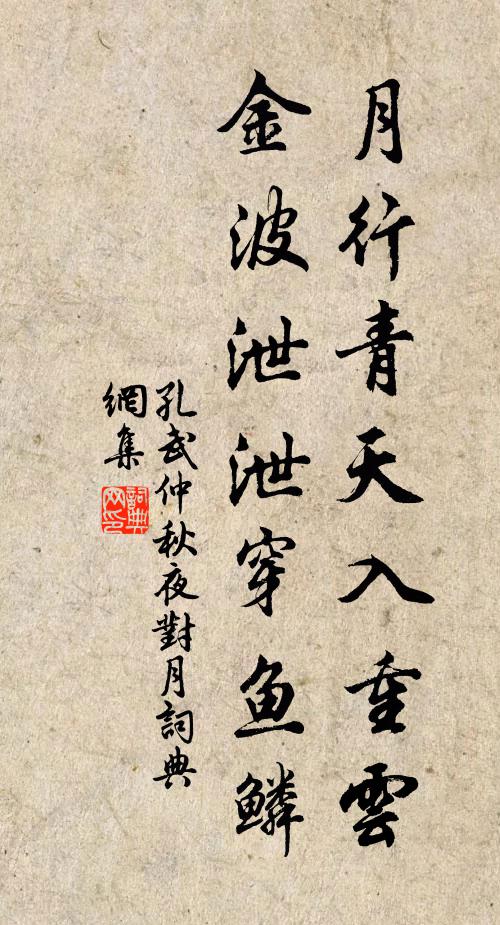 月行青天入重雲
金波泄泄穿鱼鱗
孔武仲秋夜對月詞典
網集
詞典
网印